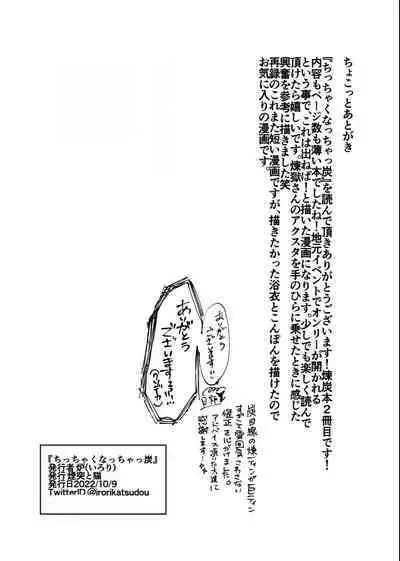 ちょこっとあとがき
『ちっちゃくなっちゃっ炭』を読んで頂きありがとうございます！煉炭本2冊目です！
内容もページ数も薄い本でしたね！地元イベントでオンリーが開かれる
という事で、これは出ねば！と描いた漫画になります。少しでも楽しく読んで
頂けたら嬉しいです。煉獄さんのアクスタを手のひらに乗せたときに感じた
興奮を参考に描きました笑
再録のこれまた短い漫画ですが、描きたかった浴衣とこんぽんを描けたので
お気に入りの漫画です。
ありがとう
ございます!!!
アドバイス頂いた友達に
感謝します
『ちっちゃくなっちゃっ炭』
発行者 炉(いろり)
発行 煙突と猫
発行日2022/10/9
TwitterID @irorikatsudou